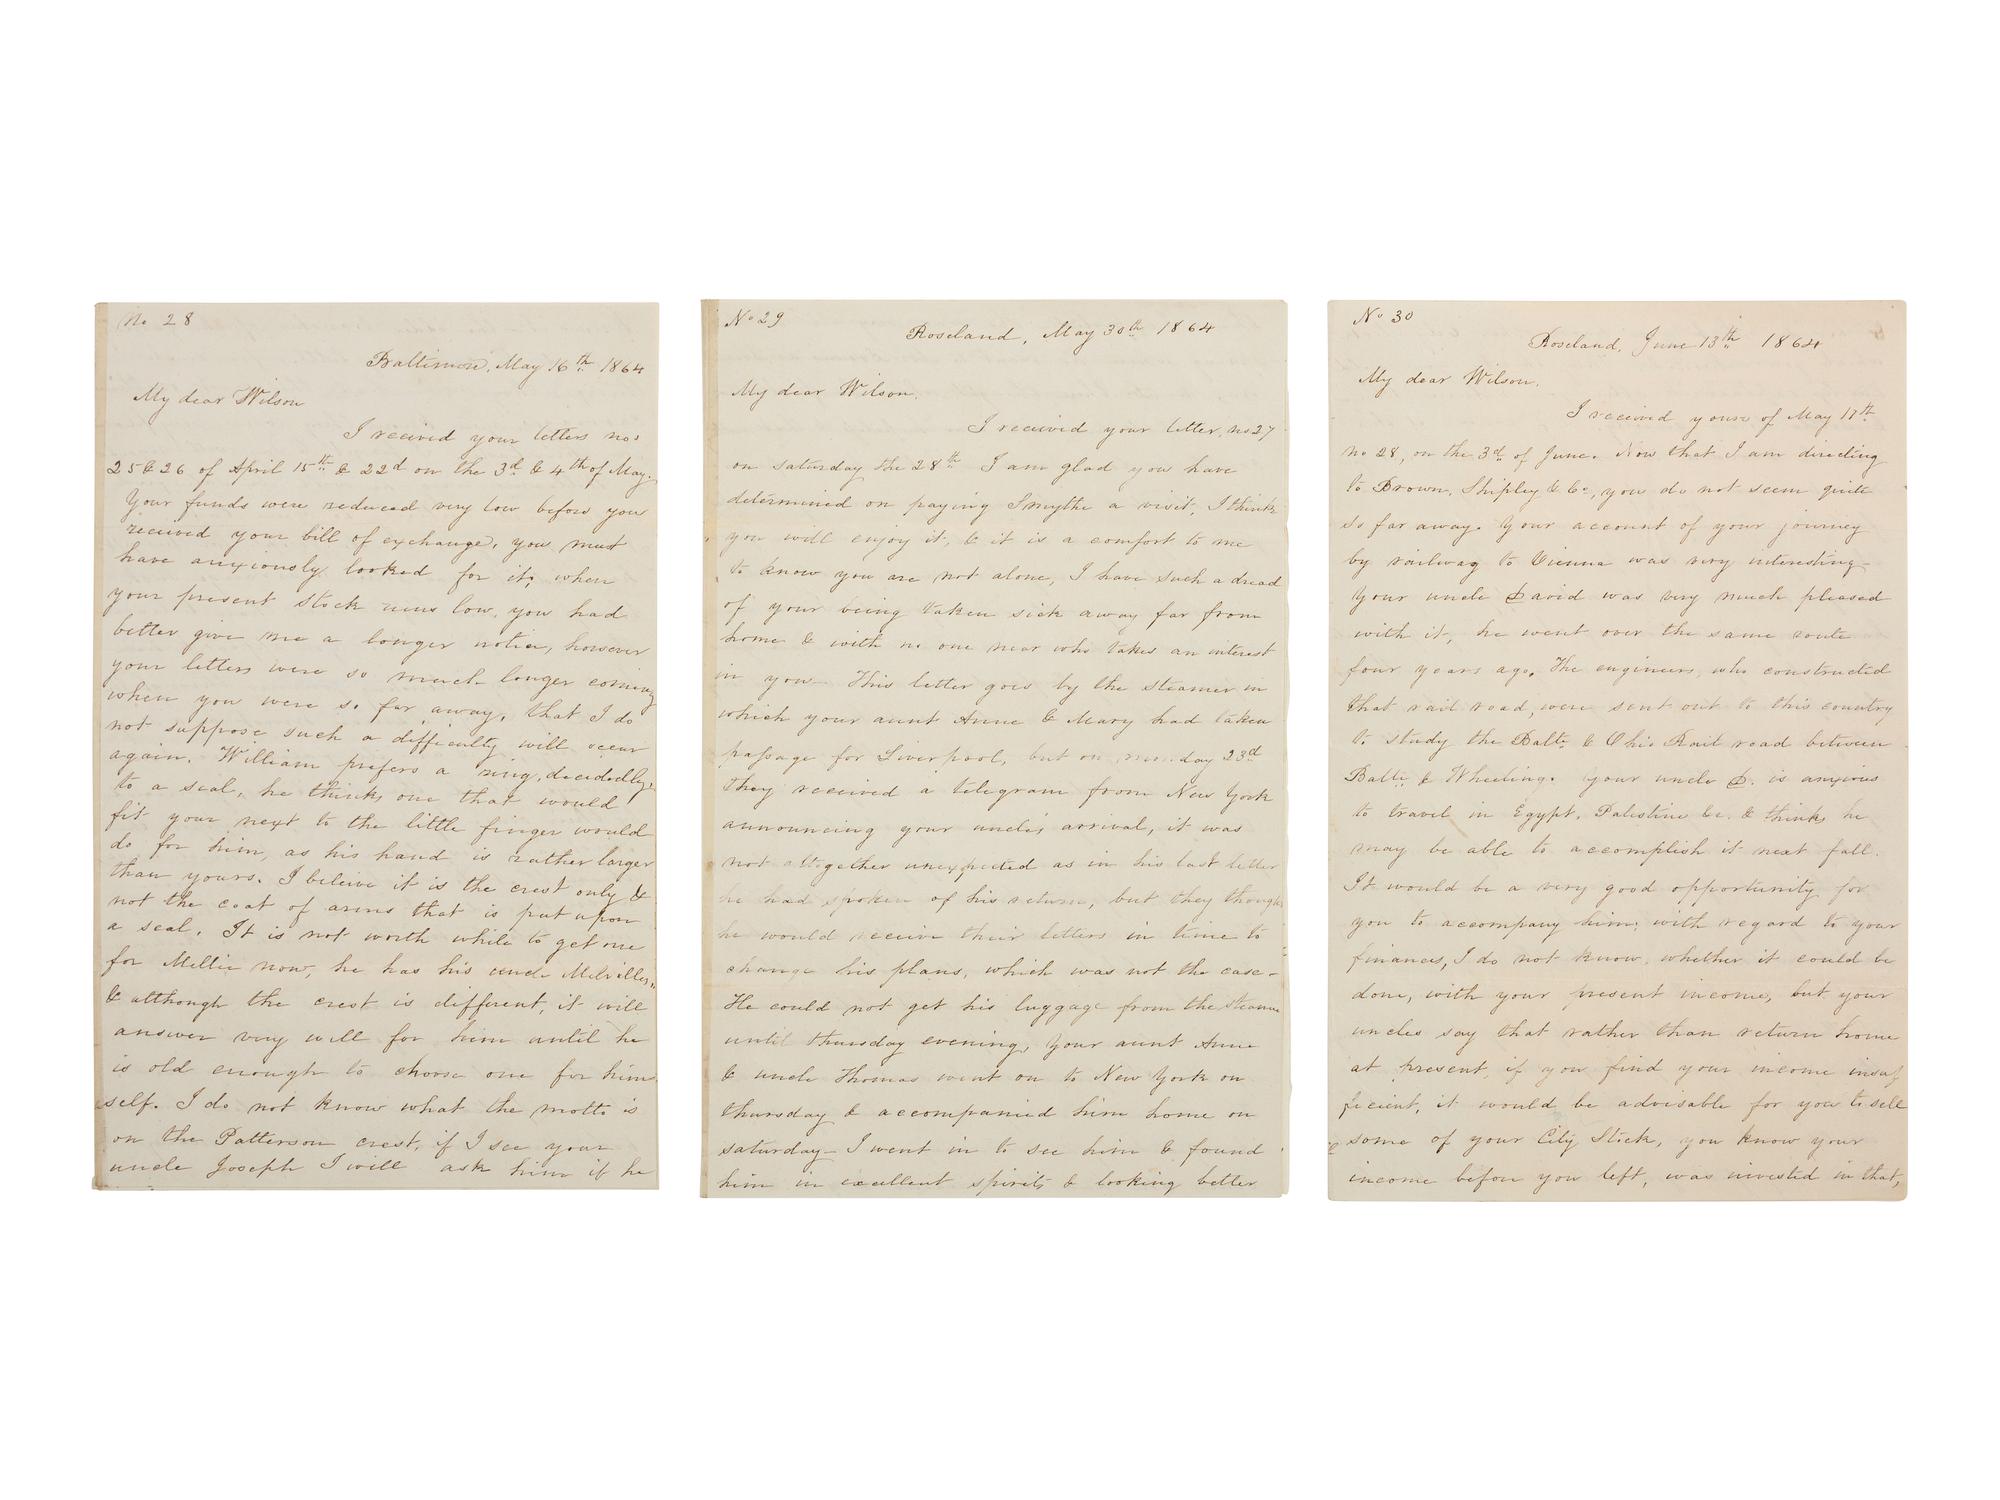 No 28
Baltimore, May 16th 1864
My dear Wilson
I received your letters nos
25 & 26 of April 15th & 22d on the 3d & 4th of May.
Your funds were reduced very low before you
received your bill of exchange, you must
have anxiously looked for it, when
your present stock runs low, you had
better give me a longer notice, however
your letters were so much longer coming
when you were so far away, that I do
not suppose such a difficulty will occur
again. William prefers a ring, decidedly,
to a seal, he thinks one that would
fit your next to the little finger would
do for him, as his hand is rather larger
than yours. I beleive it is the crest only &
not the coat of arms that is put upon
a seal. It is not worth while to get one
for Mellie now, he has his uncle Melville's,
& although the crest is different, it will
answer very well for him until he
is old enough to choose one for him
self. I do not know what the motto is
on the Patterson crest, if I see your
uncle Joseph I will ask him if he
No 29
Roseland, May 30th 1864
My dear Wilson.
I received your letter, no 27
on saturday the 28th I am glad you have
determined on paying Smythe a visit, I think
you will enjoy it, & it is a comfort to me
to know you are not alone, I have such a dread
of your being taken sick away far from
home & with no one near who takes an interest
in you. This letter goes by the steamer in
which your aunt Anne & Mary had taken
passage for Liverpool, but on monday 23d
they received a telegram from New York
announcing your uncle's arrival, it was
not altogether unexpected as in his last letter
he had spoken of his return, but they though
he would receive their letters in time to
change his plans, which was not the case -
He could not get his luggage from the steam
until thursday evening, your aunt Anne
& uncle Thomas went on to New York on
thursday & accompanied him home on
saturday - I went in to see him & found
him in excellent spirits & looking better
No 30
Roseland, June 13th 1864
My dear Wilson.
I received yours of May 17th
no 28, on the 3d of June. Now that I am directing
to Brown, Shipley & Co, you do not seem quite
so far away. Your account of your journey
by railway to Vienna was very interesting -
Your uncle David was very much pleased
with it, he went over the same route
four years ago. The engineers, who constructed
that rail road, were sent out to this country
to study the Balto. & Ohio Rail road between
Balto. & Wheeling. your uncle D. is anxious
to travel in Egypt, Palestine &c. & thinks he
may be able to accomplish it next fall.
It would be a very good opportunity for
you to accompany him; with regard to your
finances, I do not know whether it could be
done, with your present income, but your
uncles say that rather than return home
at present, if you find your income insuf
ficient, it would be advisable for you to sell
some of your City Stock, you know your
income before you left, was invested in that,